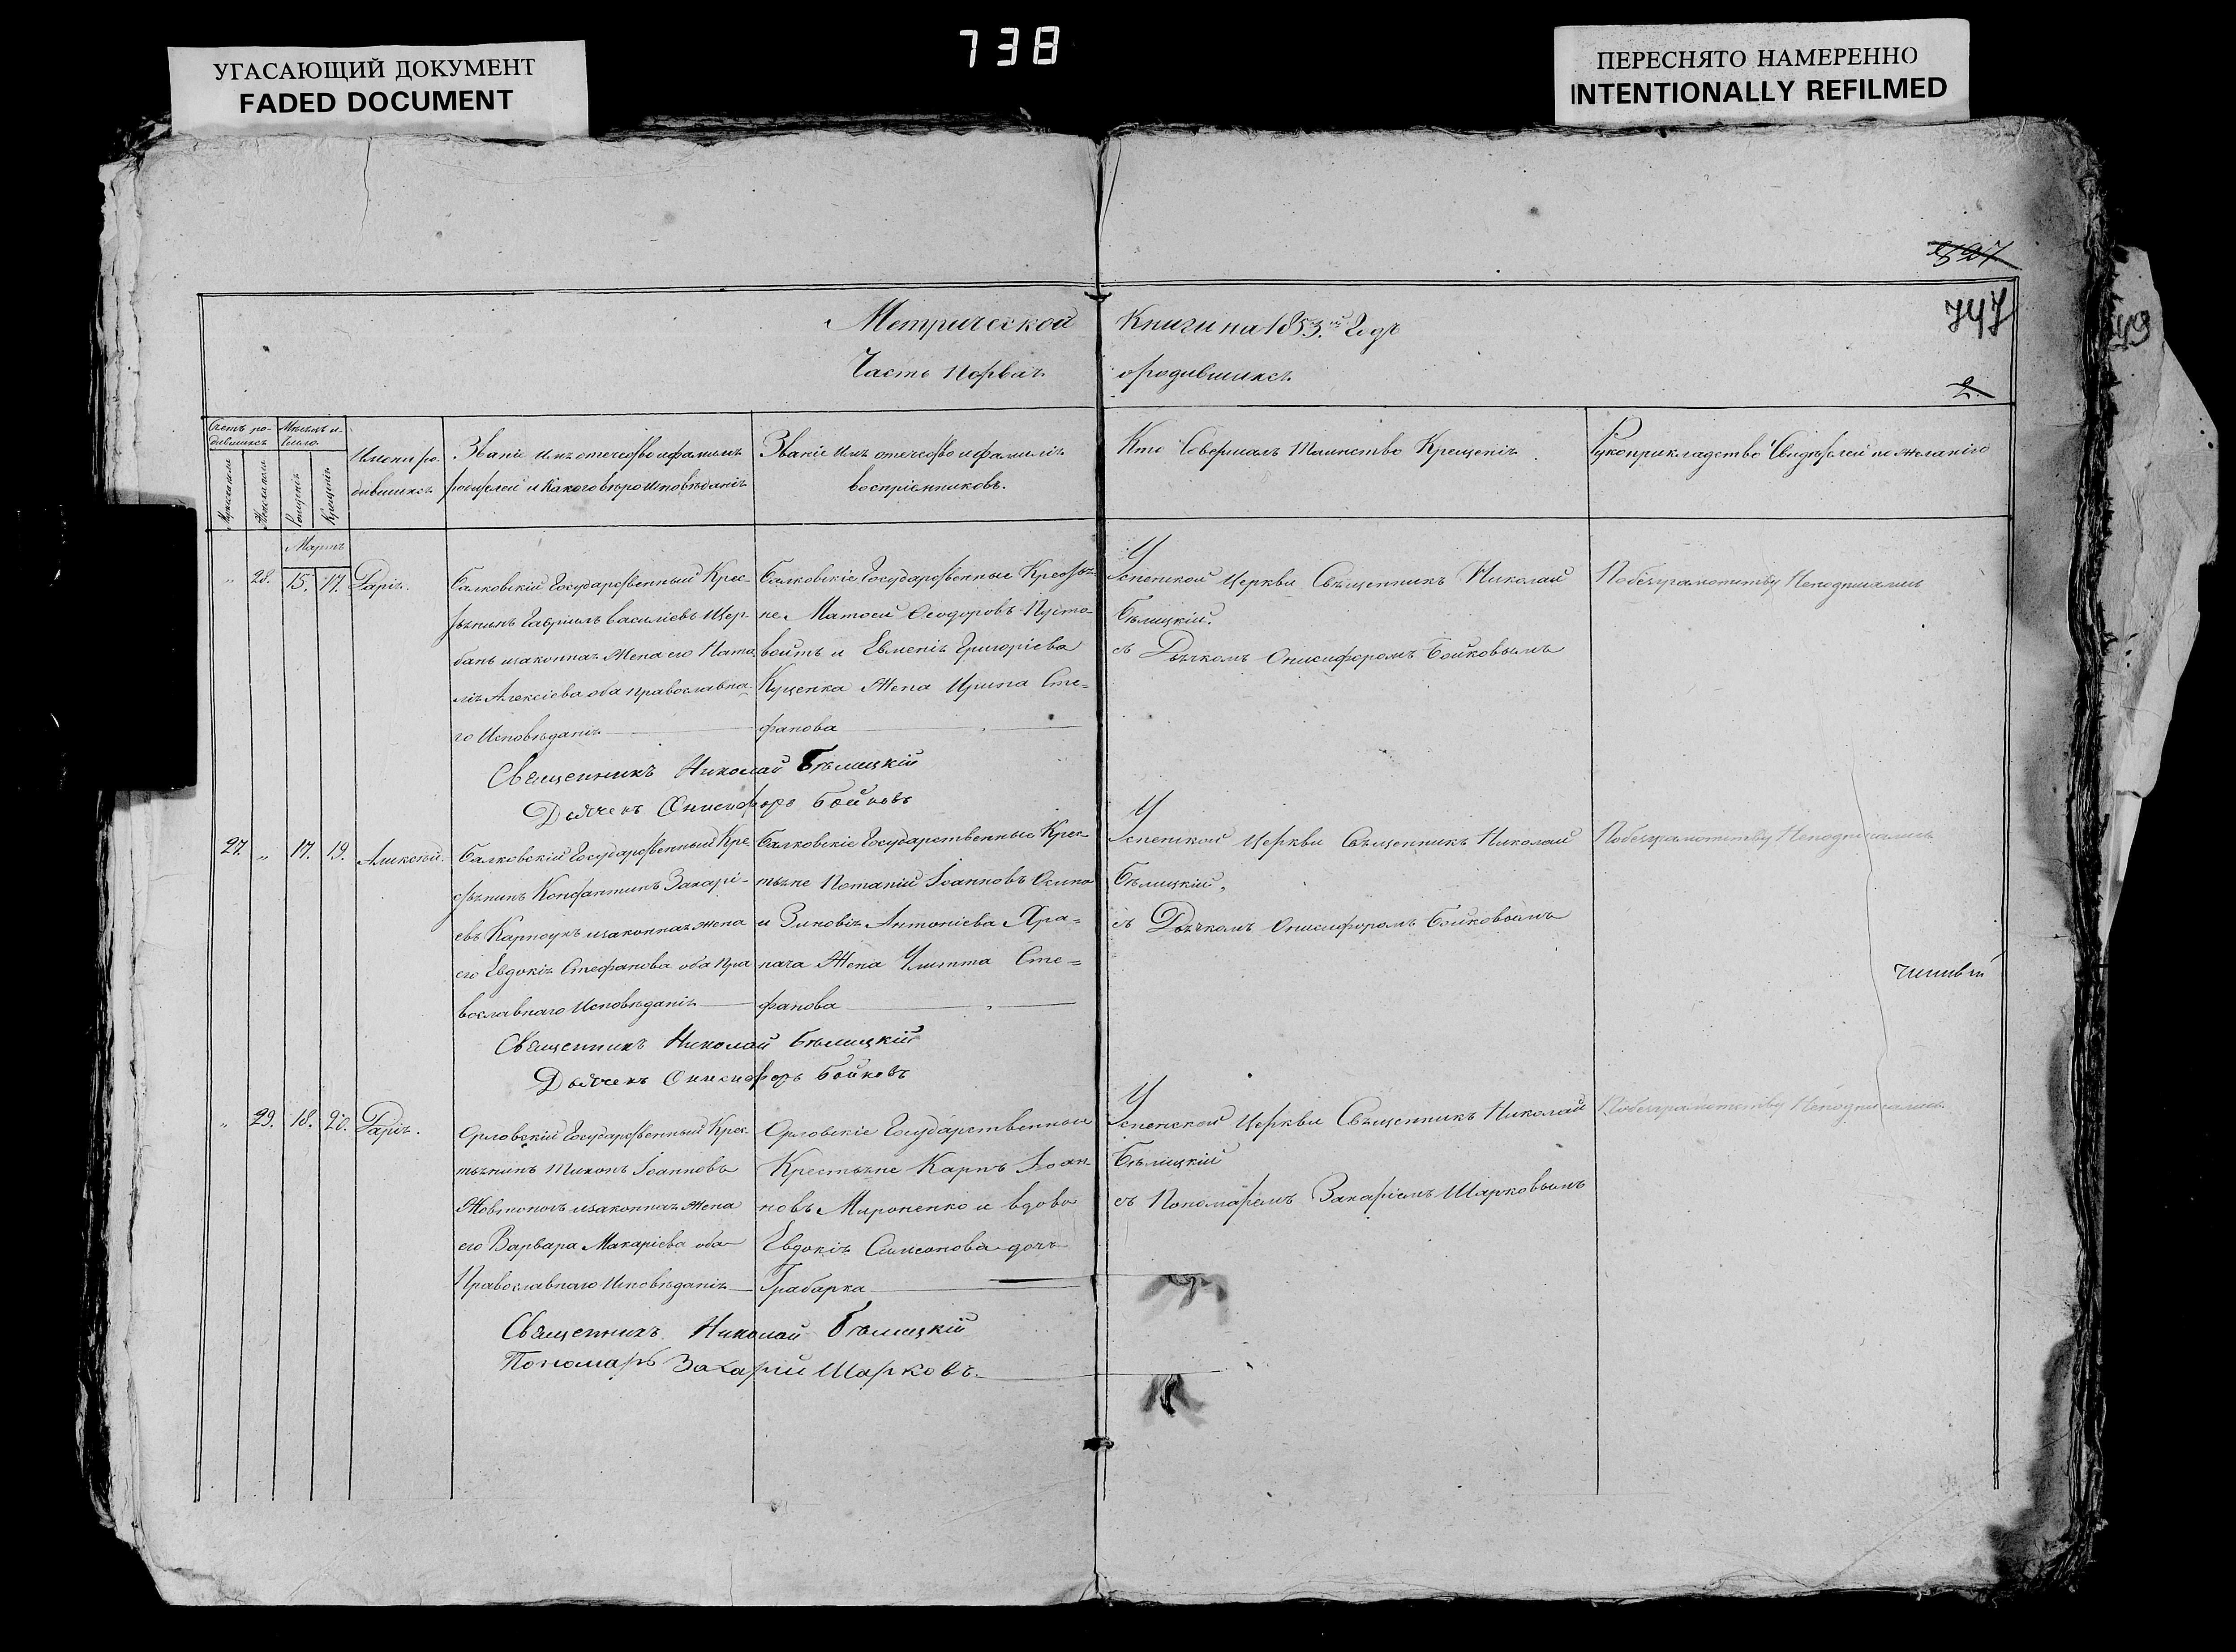 738
УГАСАЮЩИЙ ДОКУМЕНТ
FADED DOCUMENT
ПЕРЕСНЯТО НАМЕРЕННО
INTENTIONALLY REFILMED
747
Метрической Книги на 1853.й Годъ
Часть Порвая. ородившихся.
2.
Счетъ ро-
дившихся
Мужеска
Женска
Рожденія
Крещенія
Имени ро-
дившихся
Званіе имя отечество и фамилія
родителей и какого вѣроисповѣданія
Званіе имя отечество и фамилія
воспріемниковъ.
Кто Совершалъ Таинство Крещенія.
Рукоприкладство Свидѣтелей по желанію
Мартъ
" 28. 15. 17. Дарія.
Балковскій Государственный Крес-
тьянинъ Гавріилъ Василіевъ Щер-
бань изаконная Жена его Ната
лія Алексіева оба православна-
го Исповѣданія
Балковскіе Государственные Крестья-
не Матфей Феодоровъ Пусто-
войтъ и Евменія Григоріева
Куценка Жена Ирина Сте=
фанова
Успенской Церкви Священникъ Николай
Бѣлицкій.
съ Дьячкомъ Онисифоромъ Бойковымъ
Побезграмотству Неподписались
Священникъ Николай Бѣлицкій
Дьячекъ Онисифоръ Бойковъ
27. " 17. 19. Алексій.
Балковскій Государственный Кре
стьянинъ Константинъ Захарі-
евъ Карпоукъ изаконная жена
его Евдокія Стефанова оба пра
вославнаго Исповѣданія
Балковскіе Государственные Крес-
тьяне Потапій Іоанновъ
и Зиновія Антоніева Хра=
пача Жена Улитта Сте=
фанова
Успенской Церкви Священникъ Николай
Бѣлицкій,
съ Дьячкомъ Онисифоромъ Бойковымъ
Побезграмотству Неподписались
Священникъ Николай Бѣлицкій
Дьячекъ Онисифоръ Бойковъ
" 29. 18. 20. Дарія.
Орловскій Государственный Крес-
тьянинъ Тихонъ Іоанновъ
изаконная Жена
его Варвара Макаріева оба
Православнаго Исповѣданія
Орловскіе Государственныи
Крестьяне Карпъ Іоан-
новъ Мироненко и вдова
Евдокія Симеонова дочь
Грабарка
Успенской Церкви Священникъ Николай
Бѣлицкій
съ Пономаремъ Захаріемъ Шарковымъ
Побезграмотству Неподписались
Священникъ Николай Бѣлицкій
Пономарь Захарій Шарковъ